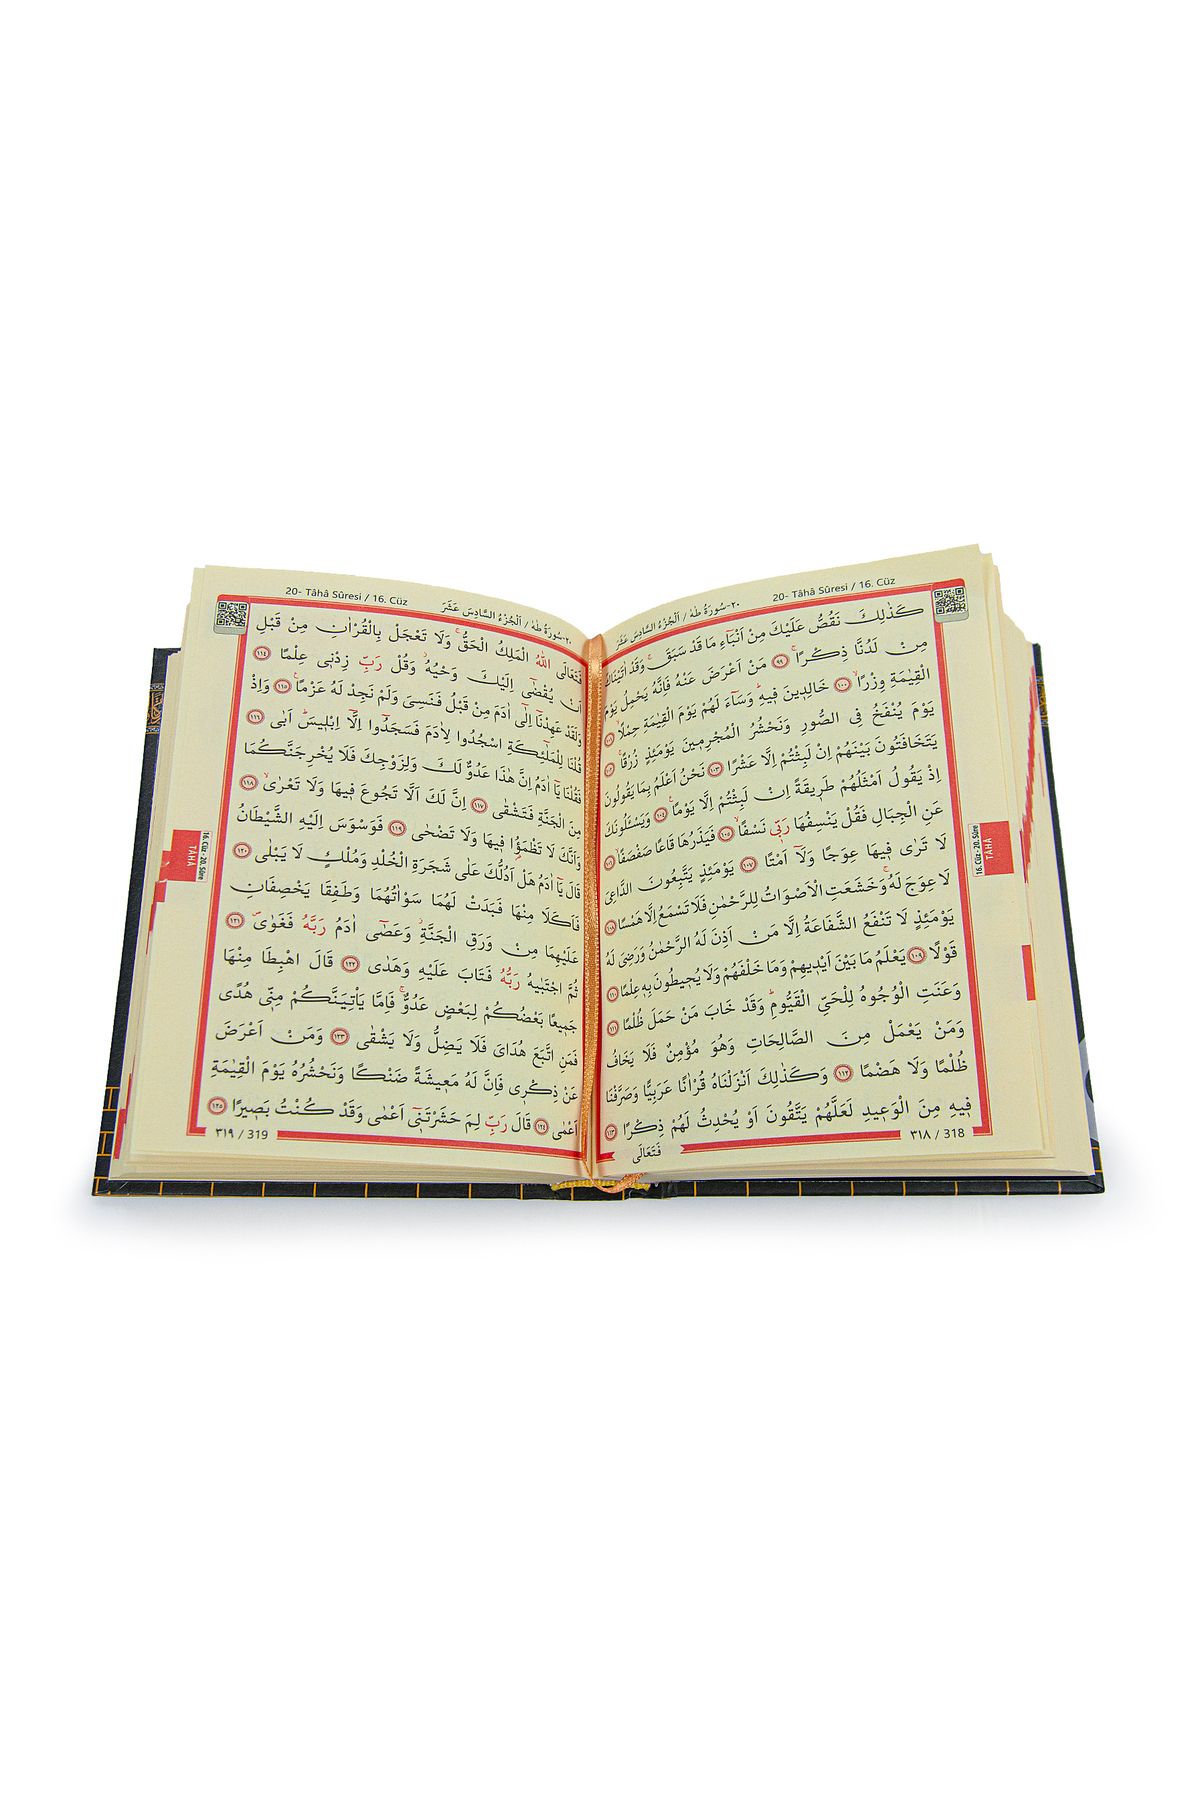 20- Tâhâ Sûresi / 16. Cüz
٢٠-سُورَةُ طٰهٰ / اَلْجُزْءُ السَّادِسَ عَشَرَ
كَذٰلِكَ نَقُصُّ عَلَيْكَ مِنْ اَنْبَٓاءِ مَا قَدْ سَبَقَۚ وَقَدْ اٰتَيْنَاكَ
مِنْ لَدُنَّا ذِكْرًاۚ ﴿٩٩﴾ مَنْ اَعْرَضَ عَنْهُ فَاِنَّهُ يَحْمِلُ يَوْمَ
الْقِيٰمَةِ وِزْرًاۙ ﴿١٠٠﴾ خَالِدٖينَ فٖيهِۜ وَسَٓاءَ لَهُمْ يَوْمَ الْقِيٰمَةِ حِمْلًاۙ ﴿١٠١﴾
يَوْمَ يُنْفَخُ فِي الصُّورِ وَنَحْشُرُ الْمُجْرِمٖينَ يَوْمَئِذٍ زُرْقًاۚ ﴿١٠٢﴾
يَتَخَافَتُونَ بَيْنَهُمْ اِنْ لَبِثْتُمْ اِلَّا عَشْرًا ﴿١٠٣﴾ نَحْنُ اَعْلَمُ بِمَا يَقُولُونَ
اِذْ يَقُولُ اَمْثَلُهُمْ طَرٖيقَةً اِنْ لَبِثْتُمْ اِلَّا يَوْمًاۚ ﴿١٠٤﴾ وَيَسْـَٔلُونَكَ
عَنِ الْجِبَالِ فَقُلْ يَنْسِفُهَا رَبّٖي نَسْفًاۙ ﴿١٠٥﴾ فَيَذَرُهَا قَاعًا صَفْصَفًاۙ ﴿١٠٦﴾
لَا تَرٰى فٖيهَا عِوَجًا وَلَٓا اَمْتًا ﴿١٠٧﴾ يَوْمَئِذٍ يَتَّبِعُونَ الدَّاعِيَ
لَا عِوَجَ لَهُۚ وَخَشَعَتِ الْاَصْوَاتُ لِلرَّحْمٰنِ فَلَا تَسْمَعُ اِلَّا هَمْسًا ﴿١٠٨﴾
يَوْمَئِذٍ لَا تَنْفَعُ الشَّفَاعَةُ اِلَّا مَنْ اَذِنَ لَهُ الرَّحْمٰنُ وَرَضِيَ لَهُ
قَوْلًا ﴿١٠٩﴾ يَعْلَمُ مَا بَيْنَ اَيْدٖيهِمْ وَمَا خَلْفَهُمْ وَلَا يُحٖيطُونَ بِهٖ عِلْمًا ﴿١١٠﴾
وَعَنَتِ الْوُجُوهُ لِلْحَيِّ الْقَيُّومِۜ وَقَدْ خَابَ مَنْ حَمَلَ ظُلْمًا ﴿١١١﴾
وَمَنْ يَعْمَلْ مِنَ الصَّالِحَاتِ وَهُوَ مُؤْمِنٌ فَلَا يَخَافُ
ظُلْمًا وَلَا هَضْمًا ﴿١١٢﴾ وَكَذٰلِكَ اَنْزَلْنَاهُ قُرْاٰنًا عَرَبِيًّا وَصَرَّفْنَا
فٖيهِ مِنَ الْوَعٖيدِ لَعَلَّهُمْ يَتَّقُونَ اَوْ يُحْدِثُ لَهُمْ ذِكْرًا ﴿١١٣﴾
٣١٨ / 318
فَتَعَالَى
16. Cüz - 20. Sûre
TÂHÂ
٢٠-سُورَةُ طٰهٰ / اَلْجُزْءُ السَّادِسَ عَشَرَ
20- Tâhâ Sûresi / 16. Cüz
فَتَعَالَى اللّٰهُ الْمَلِكُ الْحَقُّۚ وَلَا تَعْجَلْ بِالْقُرْاٰنِ مِنْ قَبْلِ
اَنْ يُقْضٰٓى اِلَيْكَ وَحْيُهُۘ وَقُلْ رَبِّ زِدْنٖي عِلْمًا ﴿١١٤﴾
وَلَقَدْ عَهِدْنَٓا اِلٰٓى اٰدَمَ مِنْ قَبْلُ فَنَسِيَ وَلَمْ نَجِدْ لَهُ عَزْمًاۚ ﴿١١٥﴾ وَاِذْ
قُلْنَا لِلْمَلٰٓئِكَةِ اسْجُدُوا لِاٰدَمَ فَسَجَدُٓوا اِلَّٓا اِبْلٖيسَۜ اَبٰى ﴿١١٦﴾
فَقُلْنَا يَٓا اٰدَمُ اِنَّ هٰذَا عَدُوٌّ لَكَ وَلِزَوْجِكَ فَلَا يُخْرِجَنَّكُمَا
مِنَ الْجَنَّةِ فَتَشْقٰى ﴿١١٧﴾ اِنَّ لَكَ اَلَّا تَجُوعَ فٖيهَا وَلَا تَعْرٰىۙ ﴿١١٨﴾
وَاَنَّكَ لَا تَظْمَؤُ۬ا فٖيهَا وَلَا تَضْحٰى ﴿١١٩﴾ فَوَسْوَسَ اِلَيْهِ الشَّيْطَانُ
قَالَ يَٓا اٰدَمُ هَلْ اَدُلُّكَ عَلٰى شَجَرَةِ الْخُلْدِ وَمُلْكٍ لَا يَبْلٰى ﴿١٢٠﴾
فَاَكَلَا مِنْهَا فَبَدَتْ لَهُمَا سَوْاٰتُهُمَا وَطَفِقَا يَخْصِفَانِ
عَلَيْهِمَا مِنْ وَرَقِ الْجَنَّةِۘ وَعَصٰٓى اٰدَمُ رَبَّهُ فَغَوٰىۖ ﴿١٢١﴾
ثُمَّ اجْتَبٰيهُ رَبُّهُ فَتَابَ عَلَيْهِ وَهَدٰى ﴿١٢٢﴾ قَالَ اهْبِطَا مِنْهَا
جَمٖيعًا بَعْضُكُمْ لِبَعْضٍ عَدُوٌّۚ فَاِمَّا يَأْتِيَنَّكُمْ مِنّٖي هُدًى
فَمَنِ اتَّبَعَ هُدَايَ فَلَا يَضِلُّ وَلَا يَشْقٰى ﴿١٢٣﴾ وَمَنْ اَعْرَضَ
عَنْ ذِكْرٖي فَاِنَّ لَهُ مَعٖيشَةً ضَنْكًا وَنَحْشُرُهُ يَوْمَ الْقِيٰمَةِ
اَعْمٰى ﴿١٢٤﴾ قَالَ رَبِّ لِمَ حَشَرْتَنٖٓي اَعْمٰى وَقَدْ كُنْتُ بَصٖيرًا ﴿١٢٥﴾
٣١٩ / 319
16. Cüz - 20. Sûre
TÂHÂ